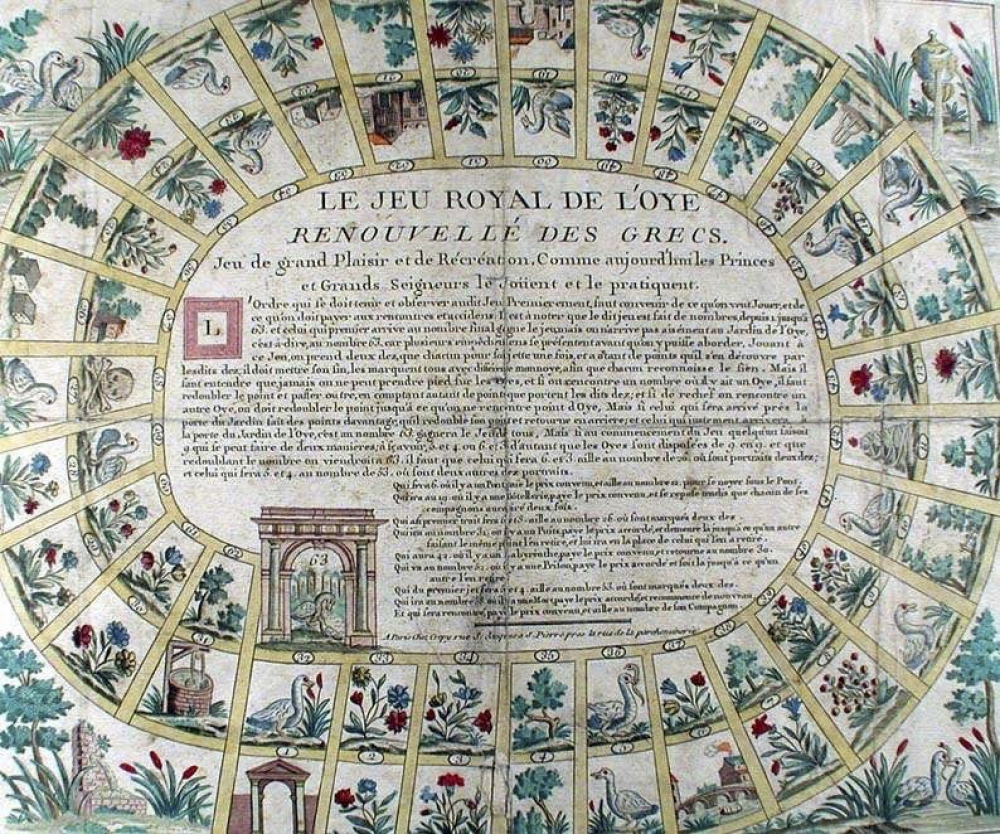 LE JEU ROYAL DE L'OYE
RENOUVELLÉ DES GRECS.
Jeu de grand Plaisir et de Récréation, Comme aujourd'hui les Princes
et Grands Seigneurs le Joüent et le pratiquent.
L'Ordre qui se doit tenir et observer audit Jeu Premierement, faut convenir de ce qu'on veut Jouer, et de
ce qu'on doit payer aux rencontres et accidens et à noter que le dit jeu est fait de nombres, depuis 1. jusqu'à
63. et celui qui premier arrive au nombre final gagne le jeu mais on n'arrive pas aisément au Jardin de l'Oye,
c'est-à-dire, au nombre 63. car plusieurs se présentent avant qu'on y puisse aborder. Jouant à
ce Jeu, on prend deux dez, que chacun pour soi jette une fois, et autant de points qu'il s'en découvre par
lesdits dez, il doit mettre son sin, les marquent tous avec diverse monnoye, afin que chacun reconnoisse le sien. Mais il
faut entendre que jamais on ne peut prendre pied sur les Oyes, et si on rencontre un nombre où il y ait un Oye, il faut
redoubler le point et passer outre, en comptant autant de points que portent les dits dez; et si de rechef on rencontre un
autre Oye, on doit redoubler le point jusqu'à ce qu'on ne rencontre point d'Oye, Mais si celui qui sera arrivé près la
porte du Jardin fait des points davantage, qu'il redouble son point et retourne en arriere; et celui qui justement arrivera
la porte du Jardin de l'Oye, c'est au nombre 63. gagnera le Jeu de tous, Mais si au commencement du Jeu quelqu'un faisoit
9. qui se peut faire de deux manieres, à sçavoir, 5. et 4. ou 6. et 3. d'autant que les Oyes sont disposées de 9. en 9. et que
redoublant le nombre on viendroit à 63. il faut que celui qui fera 6. et 3. aille au nombre de 26. où sont portraits deux dez;
et celui qui fera 5. et 4. au nombre de 53. où sont deux autres dez portraits.
Qui fera 6. où il y a un Pont paie le prix convenu, et aille au nombre 12. pour se noyer sous le Pont.
Qui ira au 19. où il y a une hôtellerie, paye le prix convenu, et se repose tandis que chacun de ses
compagnons aura tiré deux fois.
Qui au premier trait fera 6. et 3. aille au nombre 26. où sont marqués deux dez
Qui ira au nombre 31. où il y a un Puits, paye le prix accordé, et demeure là jusqu'à ce qu'un autre
faisant le même point l'en retire, et lui ira en la place de celui qui l'en a retiré.
Qui aura 42. où il y a un Labyrinthe, paye le prix convenu, et retourne au nombre 30.
Qui va au nombre 52. où il y a une Prison, paye le prix accordé et soit là jusqu'à ce qu'un
autre l'en retire.
Qui du premier jet fera 5. et 4. aille au nombre 53. où sont marqués deux dez.
Qui ira au nombre 58. où il y a une Mort, paye le prix accordé, et recommence de nouveau.
Et qui sera rencontré, paye le prix convenu, et aille au nombre de son Compagnon.
A Paris Chez Crépy rue S. Jacques à S. Pierre près la rue de la parcheminerie.
63
31
32
33
34
35
36
37
38
1
2
3
4
5
6
7